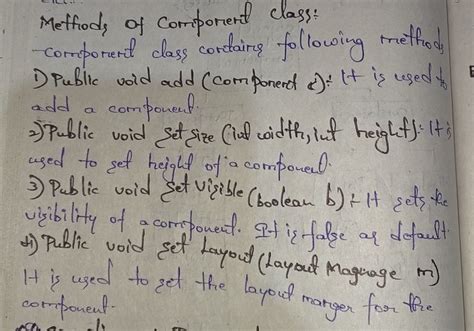 Methods of Component class:
component class contains following methods
1) Public void add (component c): It is used to
add a component.
2) Public void set size (int width, int height): It is
used to set height of a component.
3) Public void set visible (boolean b) :- It sets the
visibility of a component. It is false as default.
4) Public void set Layout (Layout Magnage m)
It is used to set the layout manger for the
component.